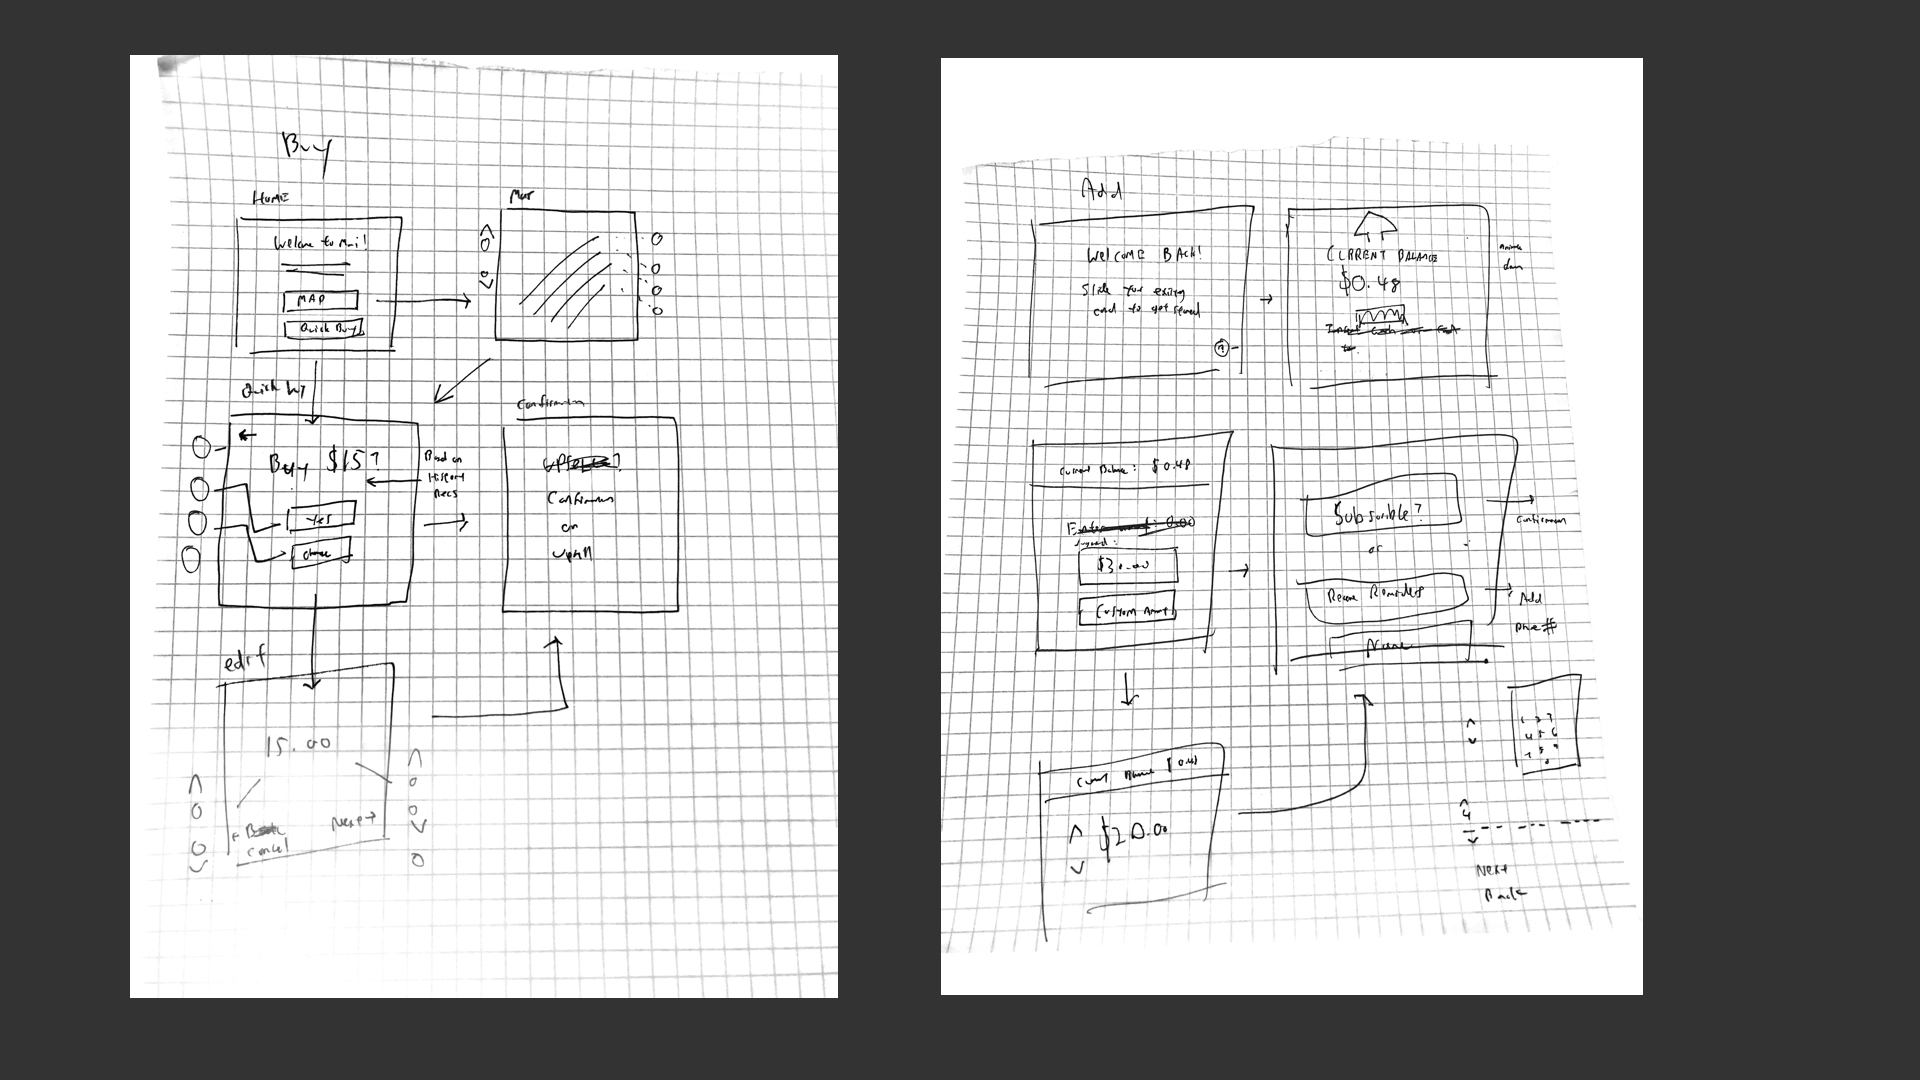 Buy
HOME
Welcome to
MAP
Quick Buy
Map
Quick buy
Buy $15?
Yes
Based on
History
Recs
Confirmation
Confirmation
or
upsell
edit
15.00
Cancel
Next →
Add
WELCOME BACK!
Slide your existing
card to get started
CURRENT BALANCE
$0.48
Current Balance: $0.48
$30.00
Custom Amnt
Subscribe?
or
Receive Reminders
None
Confirmation
Add
phone #
Current Balance $0.48
$20.00
1 2 3
4 5 6
7 8 9
0
4
Next
Back